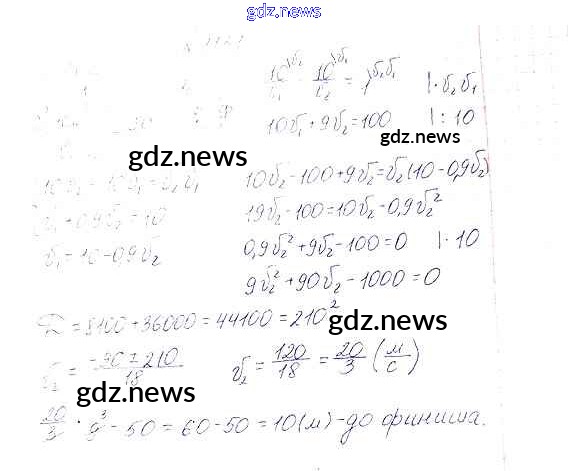 gdz.news
10/v₁ - 10/v₂ = 1 | · v₂v₁
10v₁ + 9v₂ = 100 | : 10
gdz.news
gdz.news
10v₂ - 10v₁ = v₂v₁
10v₂ - 100 + 9v₂ = v₂(10 - 0,9v₂)
v₁ + 0,9v₂ = 10
19v₂ - 100 = 10v₂ - 0,9v₂²
v₁ = 10 - 0,9v₂
0,9v₂² + 9v₂ - 100 = 0 | · 10
9v₂² + 90v₂ - 1000 = 0
D = 8100 + 36000 = 44100 = 210²
gdz.news
v₂ = -90 ± 210 / 18 v₂ = 120/18 = 20/3 (м/с)
gdz.news
20/3 · 9³ - 50 = 60 - 50 = 10 (м) - до финиша.